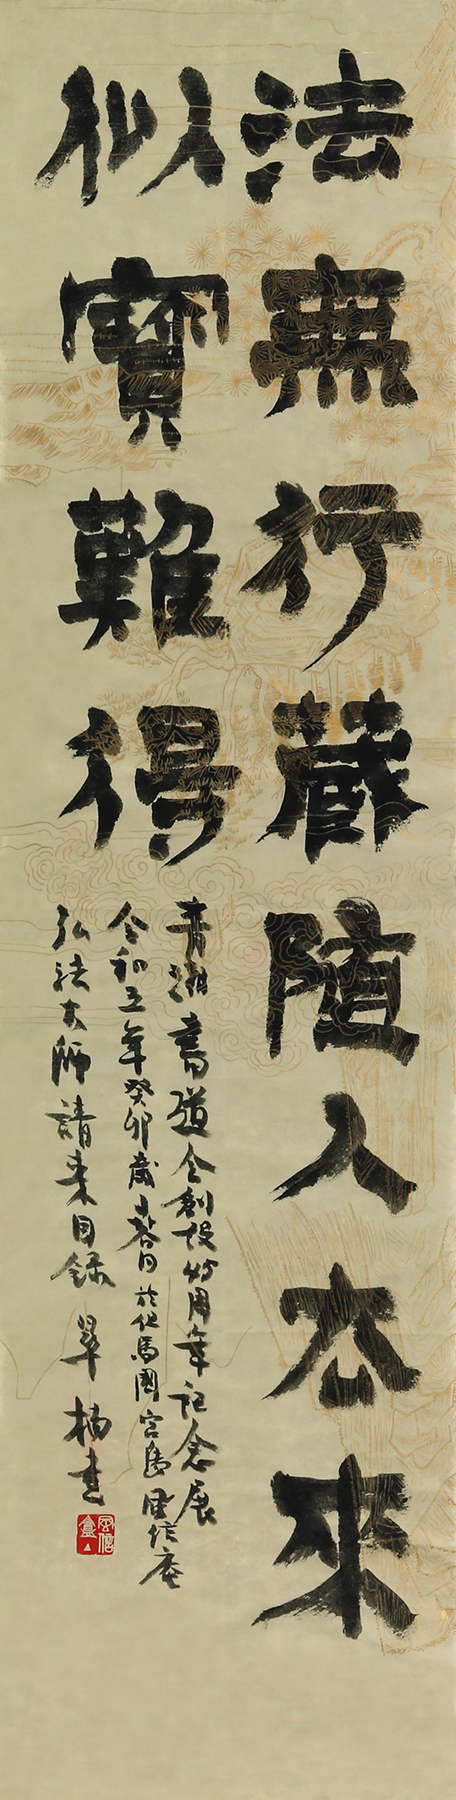 法無行蔵随人去來
似寶難得
青湖書道会創設卌周年記念展
令和五年癸卯歳春日於但馬國宮島風信庵
弘法大師請来目録 翠楠書
風信盦